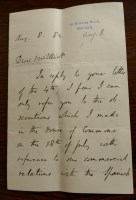 Aug. 8. 84
Aug 8
Dear
In reply to your letter
of the 4th I fear I can
only refer you to the ob
servations which I made
in the House of Commons
on the 28th of July with
reference to our commercial
relations with the Spanish